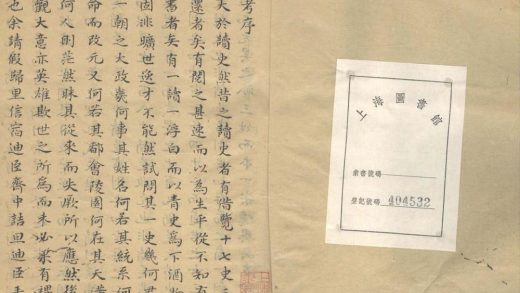 考序
大於讀史然昔之讀史者有借覽十七史
還者矣有閱之甚速而以為生平從不知有
書者矣有一讀一浮白而以青史為下酒
固非曠世逸才不能然試問其一史幾何君
一朝之大政幾何事其姓名何若其統系何
命而改元又何若其都會陵園何在其天潢
何人則茫然昧其從來而失厥所以應然後
觀大意亦英雄欺世之所為而未必果有裨
也余請假歸里信宿迪臣齊中詰旦迪臣手
上海圖書館
索書號碼
登記號碼 494532